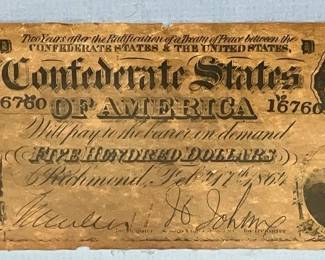 Two Years after the Ratification of a Dream of Peace between the
CONFEDERATE STATES & THE UNITED STATES,
Confederate States
16760 OF AMERICA 16760
Will pay to the bearer on demand
FIVE HUNDRED DOLLARS
Richmond, Feb. 17th, 1864